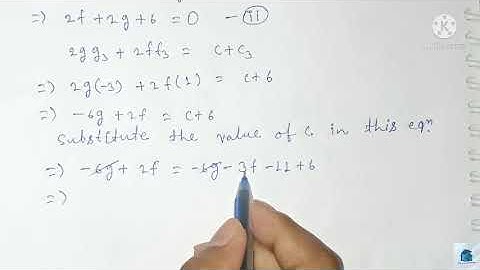 =) 2f + 2g + 6 = 0 - (11)
2gg₃ + 2ff₃ = c + c₃
=) 2g(-3) + 2f(1) = c + 6
=) -6g + 2f = c + 6
Substitute the value of c in this eqⁿ.
=) -6g + 2f = -6g - 3f - 11 + 6
=)